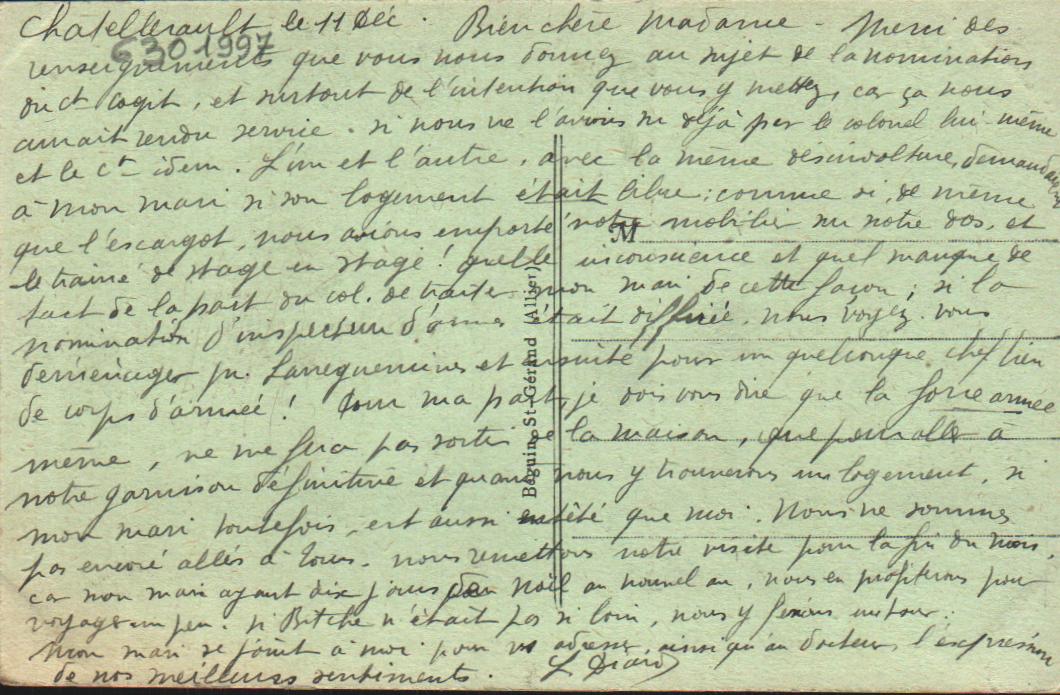 Chatellerault le 11 Déc. Bien chère Madame - Merci des
6301997
renseignements que vous nous donnez au sujet de la nomination
du ct Cogit, et surtout de l'intention que vous y mettez, car ça nous
aurait rendu service. si nous ne l'avions su déjà par le colonel lui-même
et le Ct idem. L'un et l'autre, avec la même désinvolture, demandent
à mon mari si son logement était libre; comme si, de même
que l'escargot, nous avions emporté notre mobilier sur notre dos, et
M
le traîné de stage en stage! quelle inconscience et quel manque de
tact de la part du col. de traiter mon mari de cette façon; si la
nomination d'inspecteur d'armes était différée. nous voyez-vous
déménager pr. Sarreguemines et ensuite pour un quelconque chef lieu
de corps d'armée! Pour ma part, je dois vous dire que la force armée
même, ne me fera pas sortir de la maison, que pour aller à
notre garnison définitive et quand nous y trouverons un logement, si
mon mari toutefois, est aussi entêté que moi. Nous ne sommes
pas encore allés à Tours. nous remettons notre visite pour la fin du mois,
car mon mari ayant dix jours de Noël au nouvel an, nous en profiterons pour
voyager un peu. si Bitche n'était pas si loin, nous y ferions un tour.
Mon mari se joint à moi pour vs adresser, ainsi qu'au docteur l'expression
de nos meilleurs sentiments. L Diard
Béguin, St-Gérand (Allier)